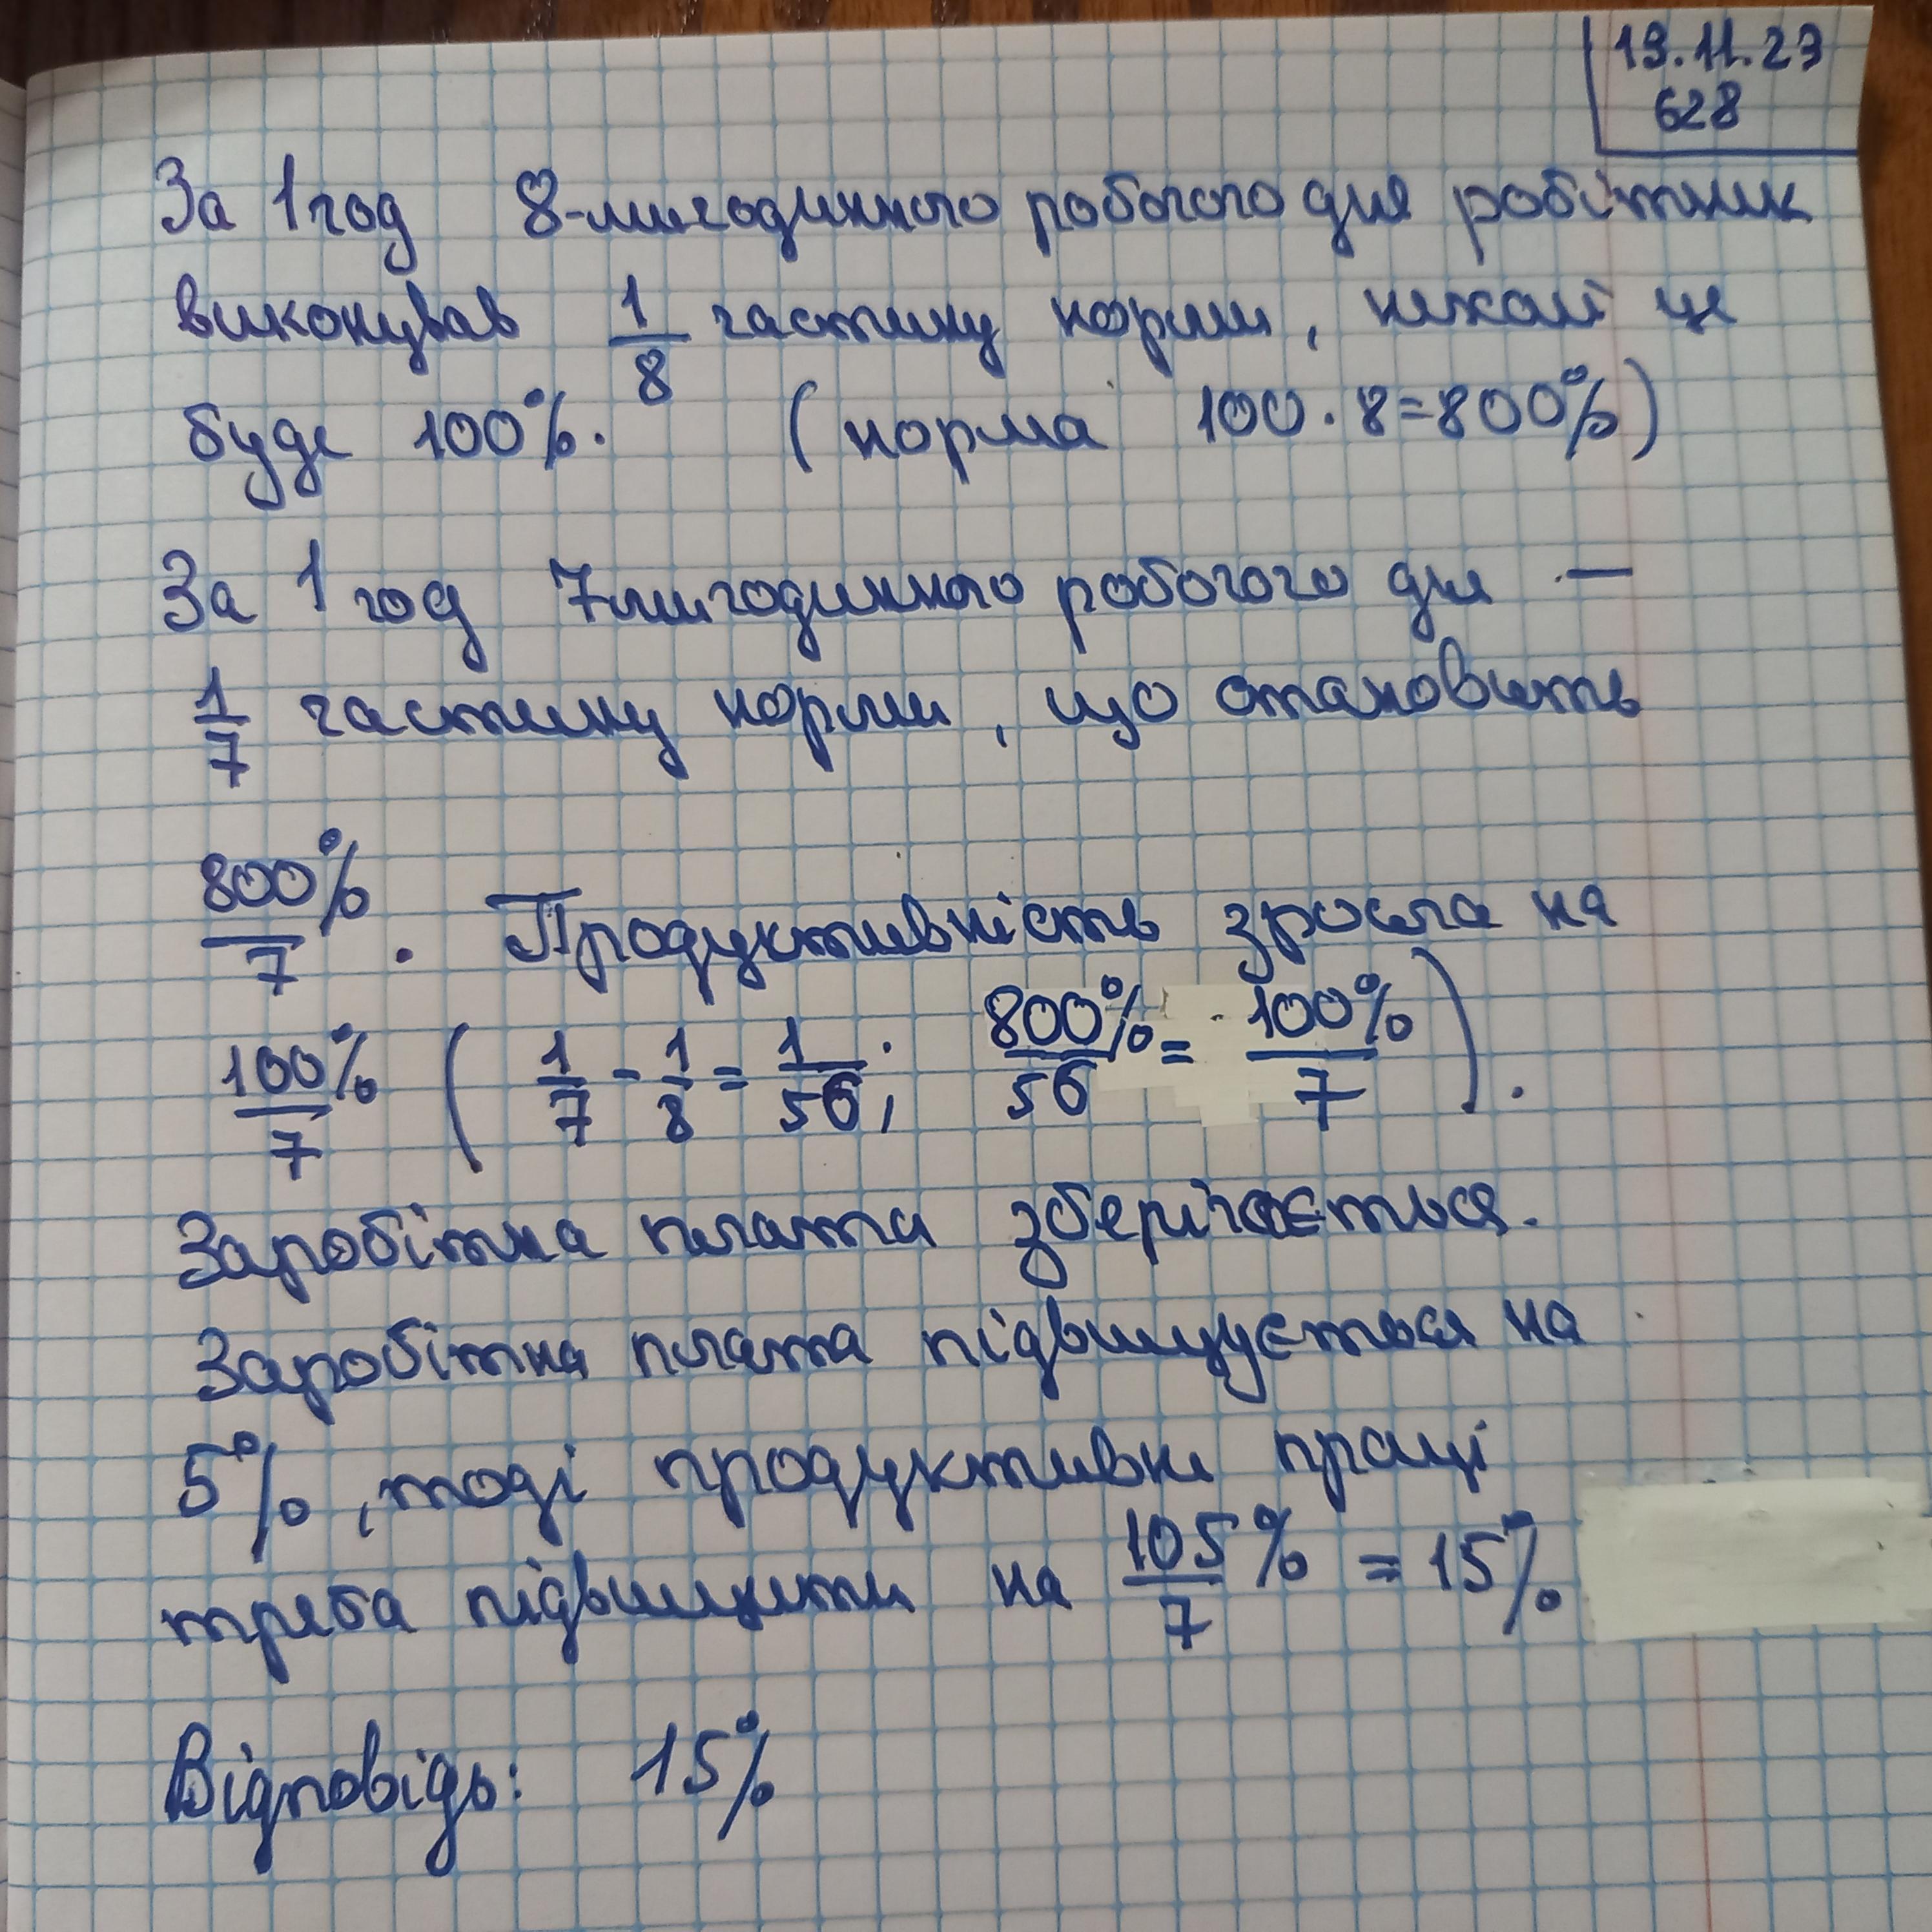 19.11.23
628
За 1 год 8-мигодинного робочого дня робітник
виконував 1/8 частину норми, нехай це
буде 100%. (норма 100·8=800%)
За 1 год 7мигодинного робочого дня —
1/7 частину норми, що становить
800%/7. Продуктивність зросла на
100%/7 (1/7 - 1/8 = 1/56; 800%/56 = 100%/7).
Заробітна плата зберігається.
Заробітна плата підвищується на
5%, тоді продуктивн праці
треба підвищити на 105/7% = 15%
Відповідь: 15%